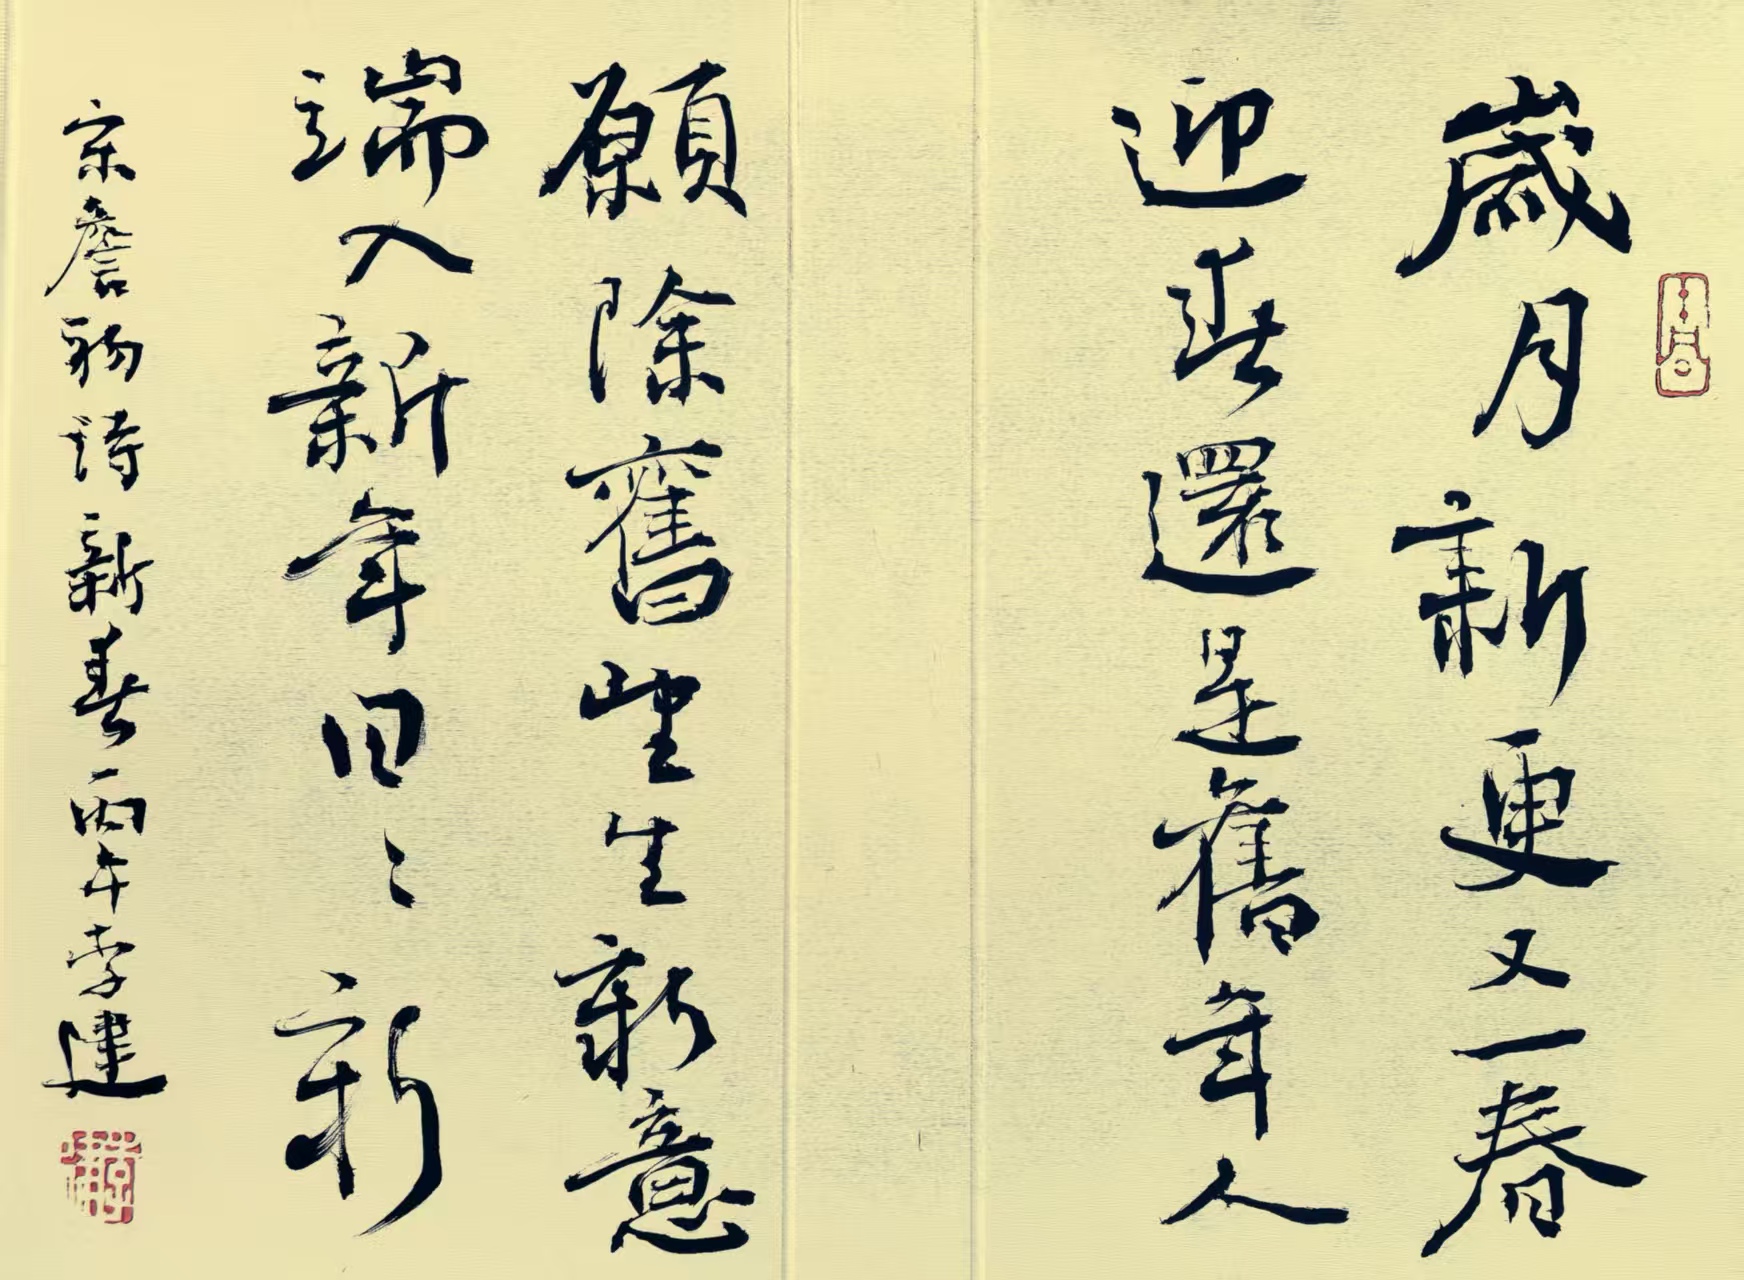 歲月新更又一春
迎春還是舊年人
願除舊望生新意
端入新年日〻新
宋詹初詩新春丙午李建